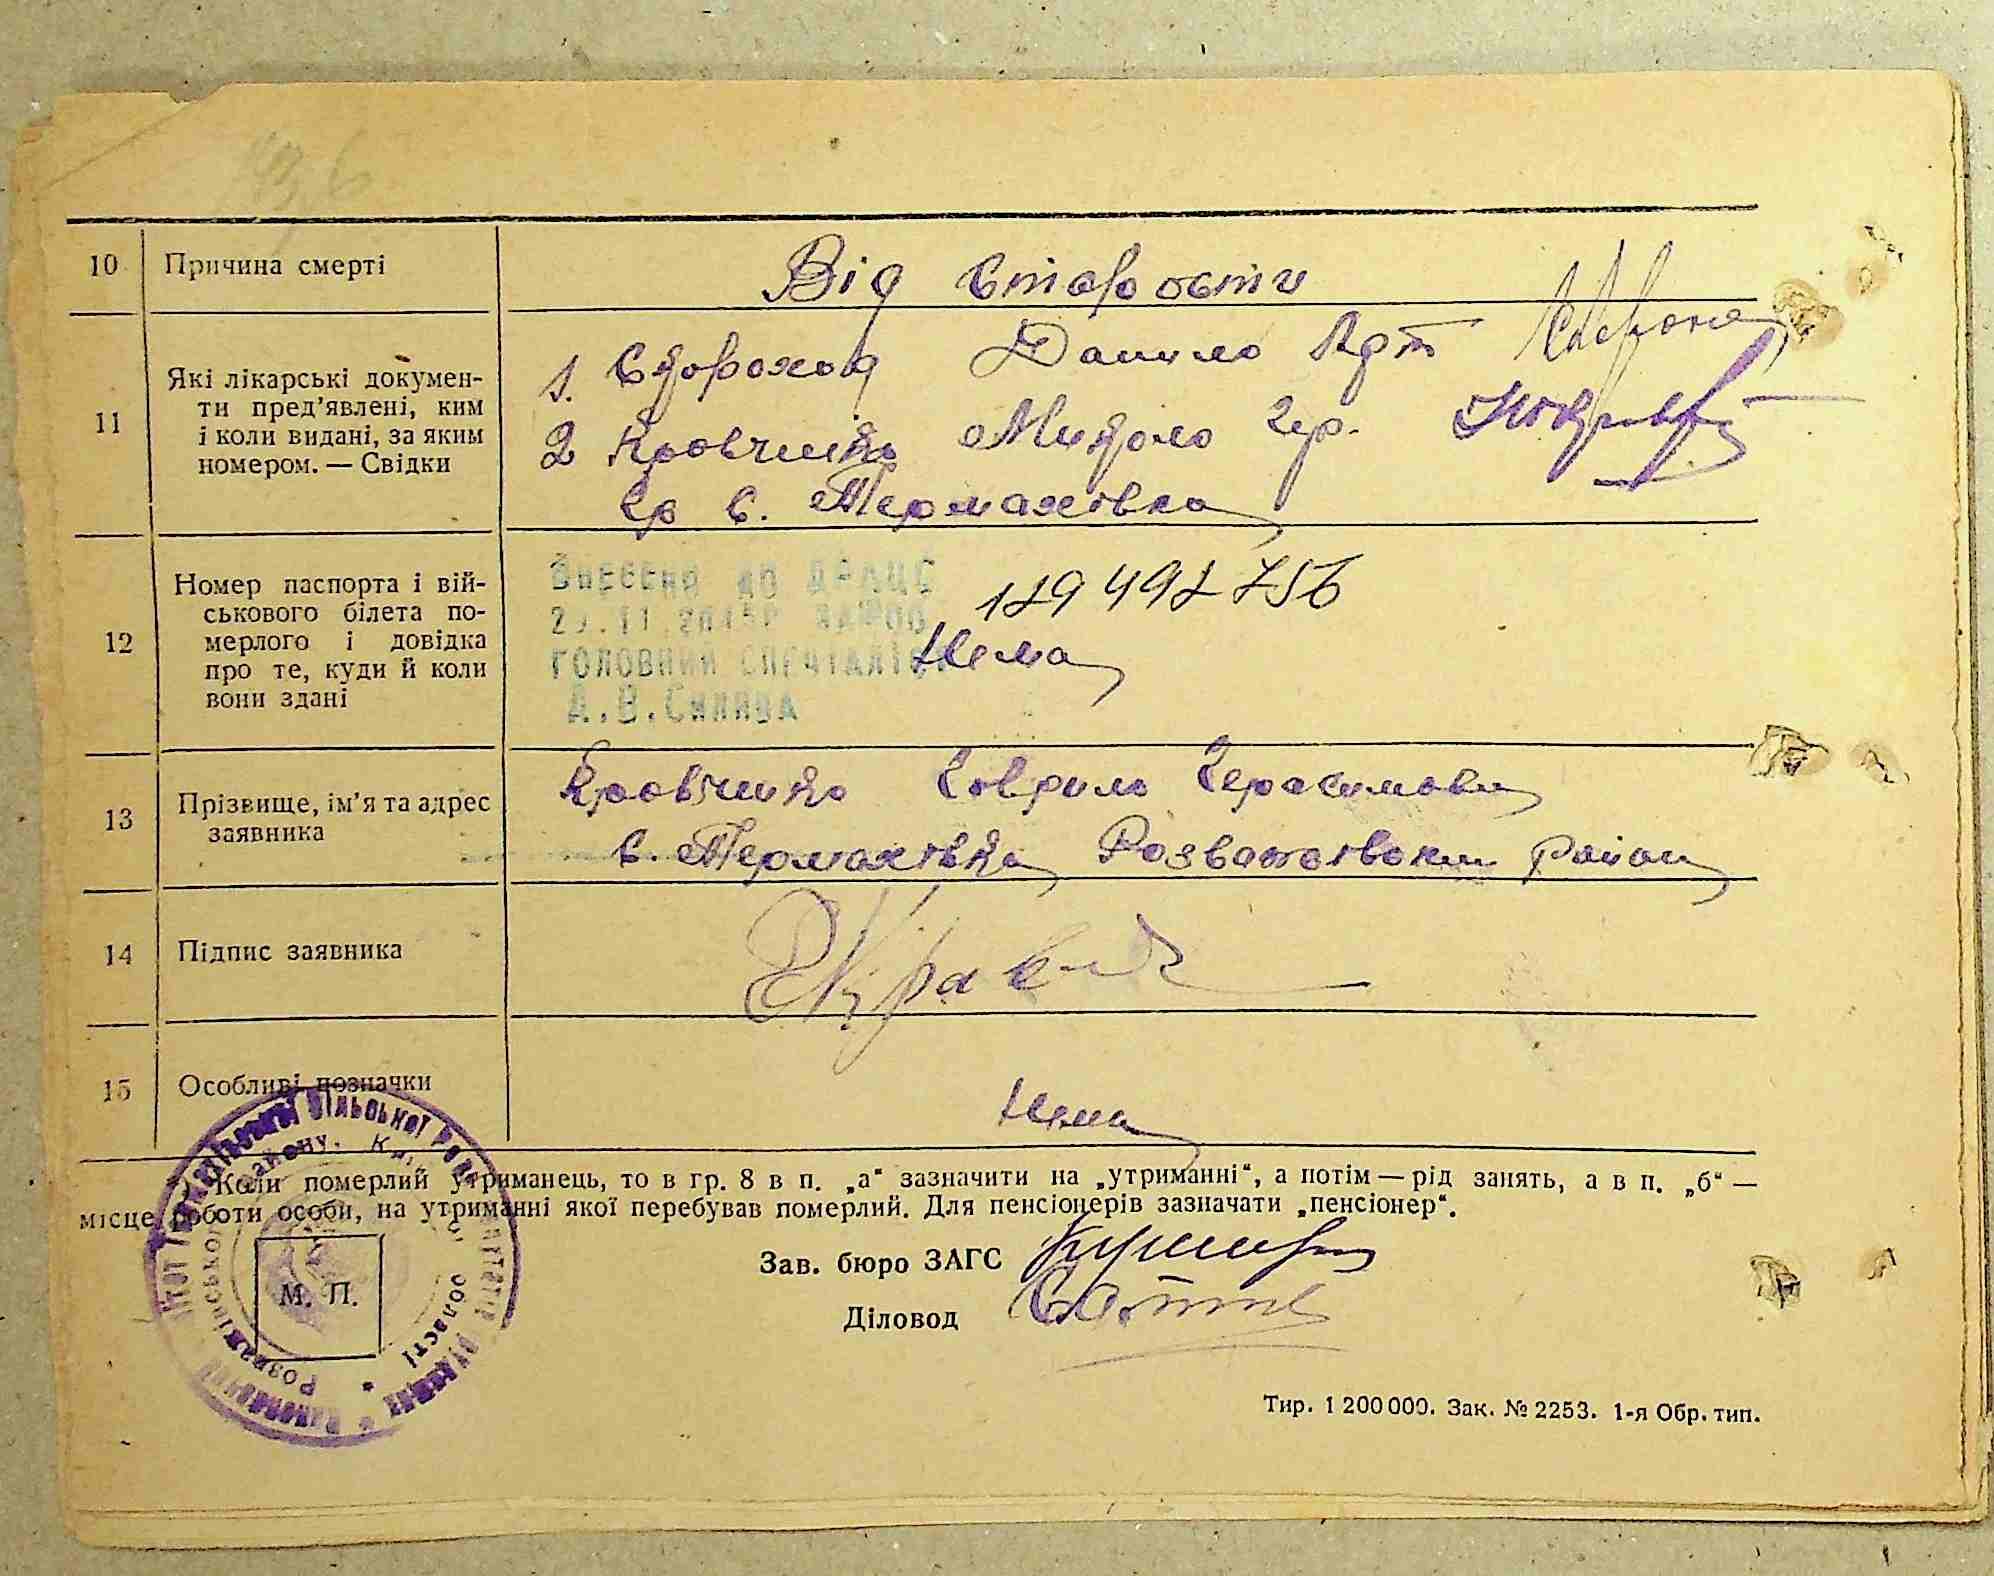 436
10 Причина смерті
Від старости
11 Які лікарські докумен-
ти пред'явлені, ким
і коли видані, за яким
номером. — Свідки
1. Сторожо Данило
2 Кравченко Микола Гер.
Гр с. Термахівка
12 Номер паспорта і вій-
ськового білета по-
мерлого і довідка
про те, куди й коли
вони здані
Внесено до ДРАЦС
ГОЛОВНИЙ СПЕЦІАЛІСТ
Нема
13 Прізвище, ім'я та адрес
заявника
Кравченко Гаврило Герасимович
с. Термахівка Розважівський район
14 Підпис заявника
15 Особливі позначки
Нема
Коли померлий утриманець, то в гр. 8 в п. „а“ зазначити на „утриманні“, а потім — рід занять, а в п. „б“ —
місце роботи особи, на утриманні якої перебував померлий. Для пенсіонерів зазначати „пенсіонер“.
Зав. бюро ЗАГС
Діловод
М. П.
Тир. 1 200 000. Зак. № 2253. 1-я Обр. тип.